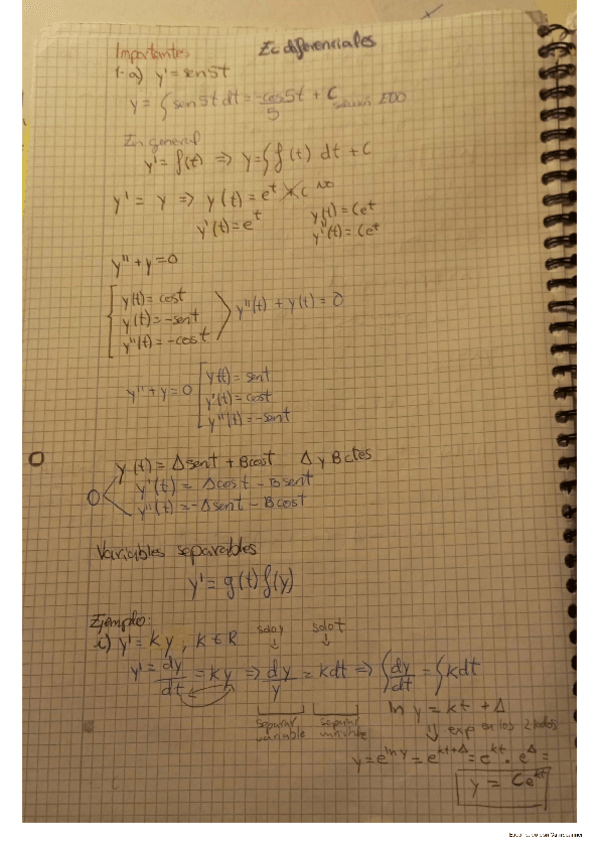 Ec diferenciales
Importantes
1-a) y' = sen5t
y = ∫ sen5t dt = -cos5t/5 + C EDO
En general
y' = f(t) ⇒ y = ∫ f(t) dt + C
y' = y ⇒ y(t) = e^t + C NO
y'(t) = e^t
y(t) = Ce^t
y'(t) = Ce^t
y'' + y = 0
y(t) = cost
y(t) = -sent
y''(t) = -cost
y''(t) + y(t) = 0
y'' + y = 0
y(t) = sent
y'(t) = cost
y''(t) = -sent
y(t) = Asent + Bcost A y B ctes
y'(t) = Acost - Bsent
y''(t) = -Asent - Bcost
0
Variables separables
y' = g(t) f(y)
Ejemplo:
i) y' = ky, k ∈ R
solo y
solo t
y' = dy/dt = ky ⇒ dy/y = kdt ⇒ ∫ dy/dt = ∫ kdt
separar variable
separar variable
ln y = kt + A
⇓ exp en los 2 lados
y = e^{ln y} = e^{kt+A} = e^{kt} · e^A =
y = Ce^{kt}